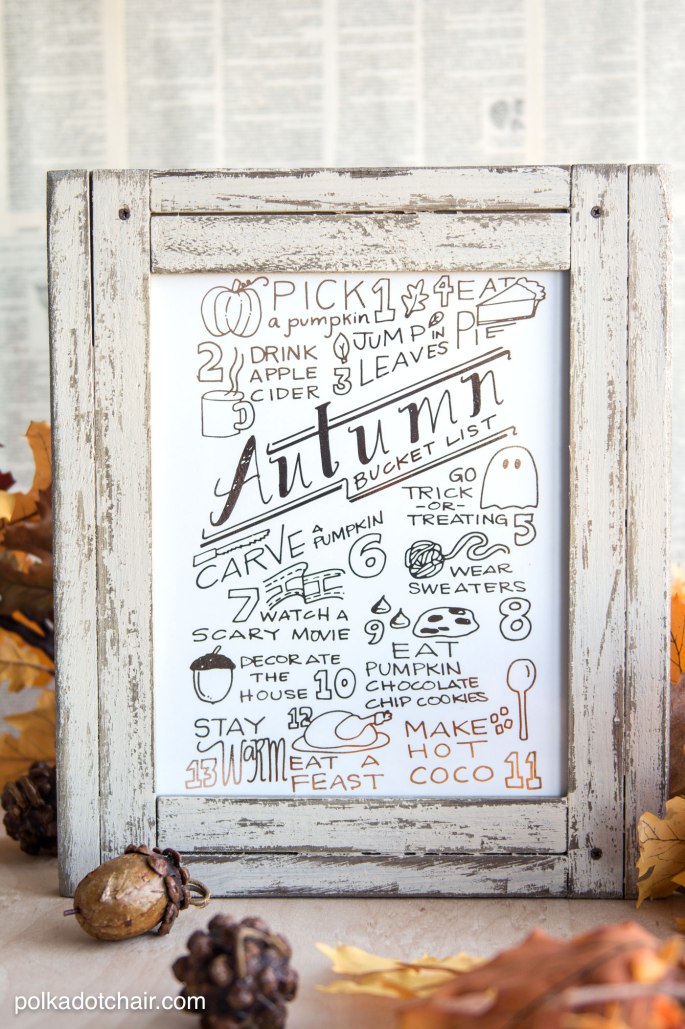 PICK 1
a pumpkin
4 EAT
PIE
2 DRINK
APPLE
CIDER
3 JUMP IN
LEAVES
Autumn
BUCKET LIST
GO
TRICK
-OR-
TREATING 5
CARVE A
PUMPKIN
6
WEAR
SWEATERS
8
7 WATCH A
SCARY MOVIE
9 EAT
PUMPKIN
CHOCOLATE
CHIP COOKIES
DECORATE
THE
HOUSE 10
STAY
13 Warm
12
EAT A
FEAST
MAKE
HOT
COCO 11
polkadotchair.com